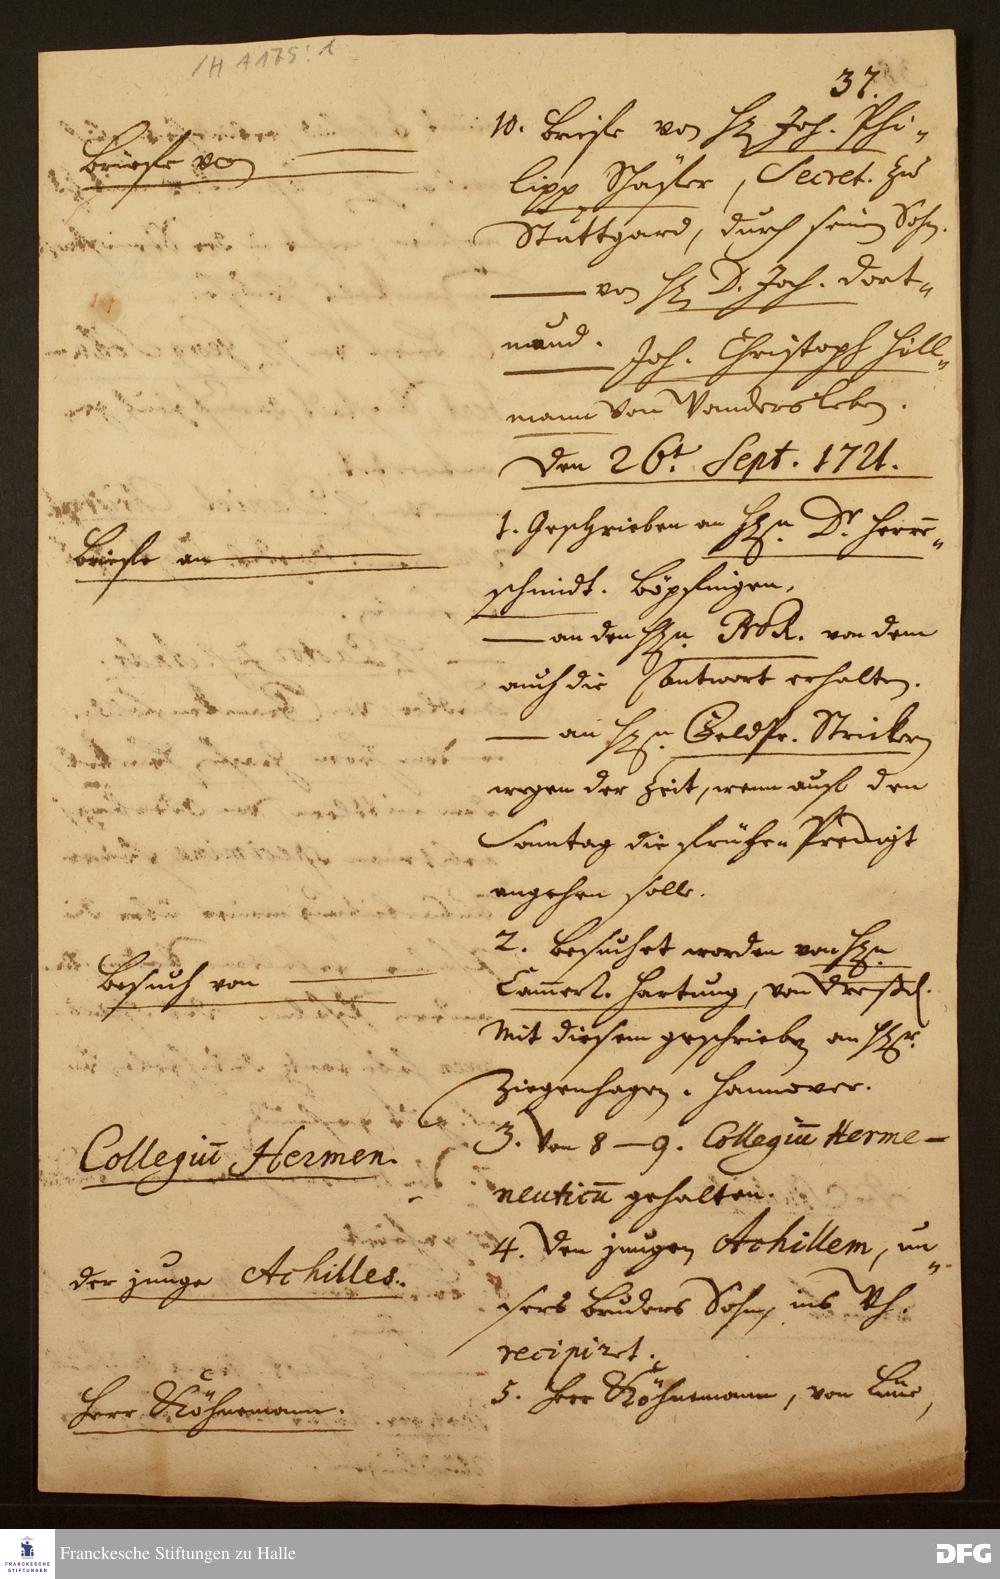 /H A 175: 1
37.
Briefe von
10. Briefe von H. Joh. Phi-
lipp Schäfer, Secret. zu
Stuttgard, durch seinen Sohn.
von H. D. Joh. Dort-
mund.
Joh. Christoph Höll-
mann von Wandersleben.
Den 26t. Sept. 1721.
Briefe an
1. Geschrieben an H.n Dr. Herrn-
schmidt. Böpfingen,
an den H.n von dem
auch die Antwort erhalten.
an H.n Feldpr. Strickern
wegen der Zeit, wenn auf den
Sonntag die frühe Predigt
angehen solle.
Besuch von
2. Besuchet worden von H.n
Cammerl. Hartung, von
Mit diesem geschrieben an H.
Ziegenhagen. Hannover.
Collegiū Hermen.
3. Von 8 – 9. Collegiū Herme-
neuticū gehalten.
der junge Achilles.
4. Den jungen Achillem, un-
sers Bruders Sohn, ins Wh.
recipiret.
Herr Köhnemann.
5. Herr Köhnemann, von
FRANCKESCHE
STIFTUNGEN
Franckesche Stiftungen zu Halle
DFG